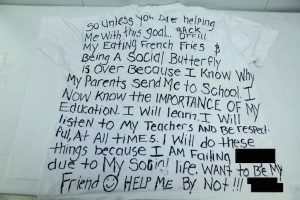 So unless you are helping
Me with this goal.. BACK
OFF!!!
My Eating French Fries $
Being A Social Butterfly
is Over Because I Know Why
My Parents Send Me to School. I
Now Know the IMPORTANCE OF My
Education. I Will learn. I Will
listen to My Teachers AND Be respect
ful, At All TIMES. I Will do these
things because I AM Failing
due to My Social life, WANT to Be My
Friend HELP ME By Not !!!